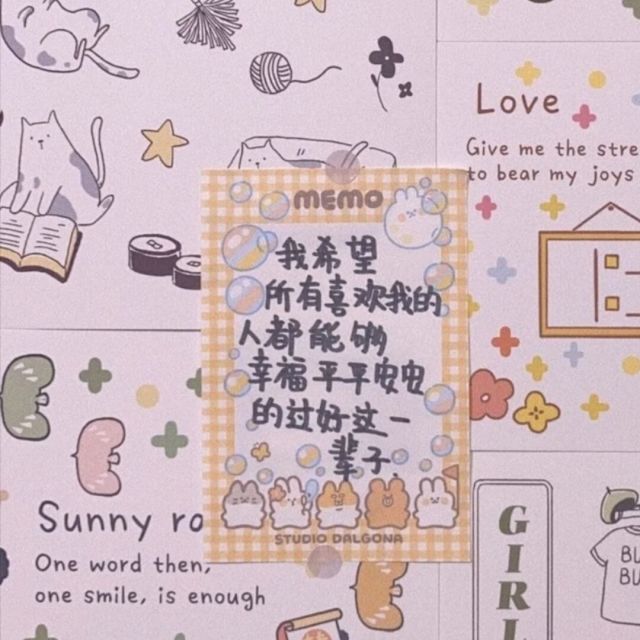 Love
Give me the stre
to bear my joys
MEMO
我希望
所有喜欢我的
人都能够
幸福平平安安
的过好这一
辈子.
STUDIO DALGONA
Sunny ro
One word then,
one smile, is enough
GIRL
BU
BU